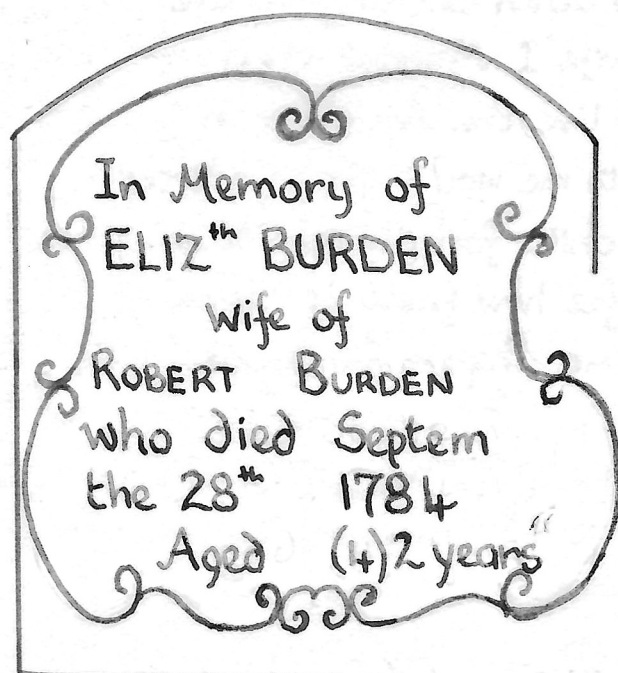 In Memory of
ELIZth BURDEN
wife of
ROBERT BURDEN
who died Septem
the 28th 1784
Aged (4)2 years"